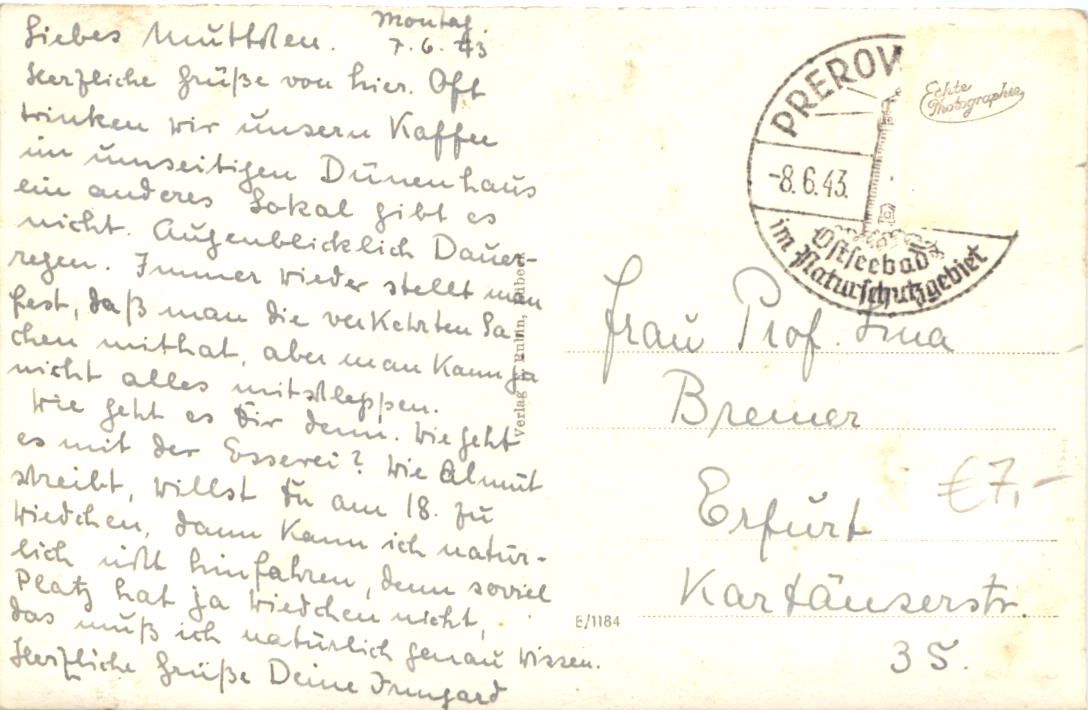 Montag.
7.6.43
Liebes Muttchen.
Herzliche Grüße von hier. Oft
trinken wir unsern Kaffee
im umseitigen Dünenhaus
ein anderes Lokal gibt es
nicht. Augenblicklich Dauer-
regen. Immer wieder stellt man
fest, daß man die verkehrten Sa-
chen mithat, aber man kann ja
nicht alles mitschleppen.
Wie geht es Dir denn. Wie geht
es mit der Esserei? Wie Almut
schreibt, willst Du am 18. zu
Wiedchen, dann kann ich natür-
lich nicht hinfahren, denn soviel
Platz hat ja Wiedchen nicht,
das muß ich natürlich genau wissen.
Herzliche Grüße Deine Irmgard
Verlag
E/1184
PREROW
-8.6.43.
Ostseebad
im Naturschutzgebiet
Echte
Photographie
Frau Prof. Lina
Bremer
Erfurt
€7,-
Kartäuserstr.
35.